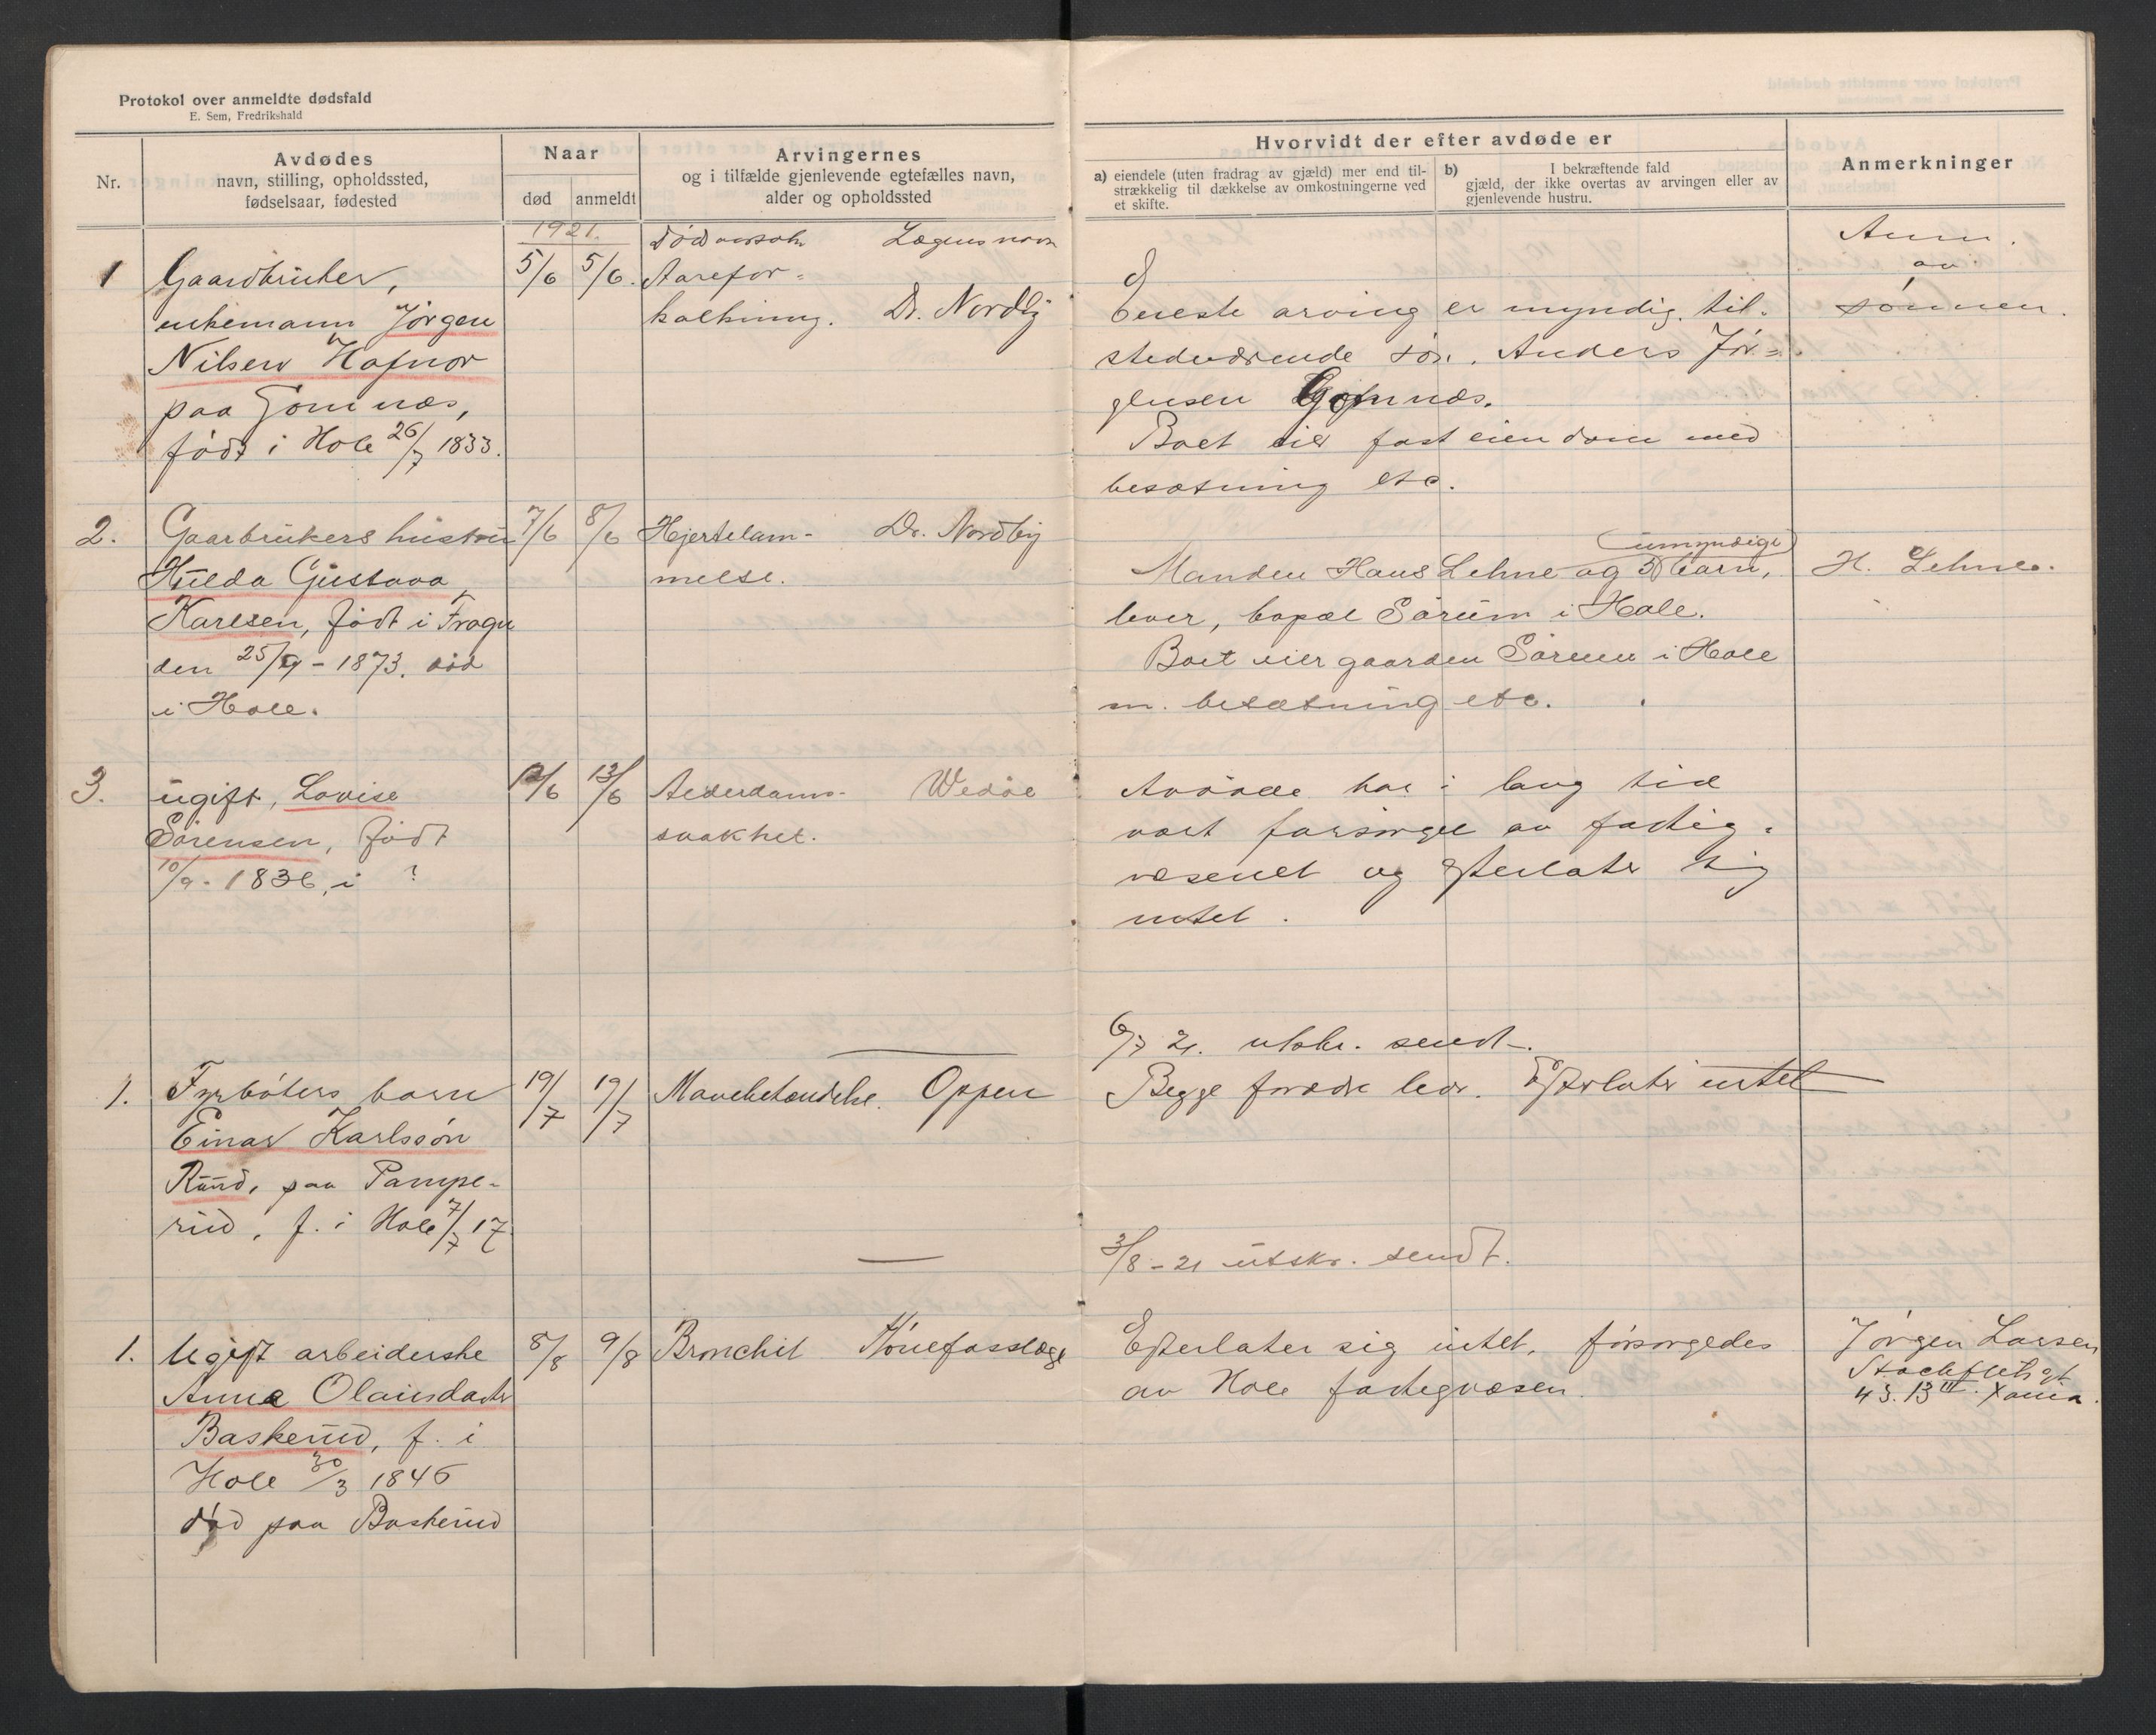 Protokol over anmeldte dødsfald
E. Sem, Fredrikshald
Nr.
Avdødes
navn, stilling, opholdssted,
fødselsaar, fødested
Naar
død
anmeldt
Arvingernes
og i tilfælde gjenlevende egtefælles navn,
alder og opholdssted
Hvorvidt der efter avdøde er
a) eiendele (uten fradrag av gjæld) mer end til-
strækkelig til dækkelse av omkostningerne ved
et skifte.
b) I bekræftende fald
gjæld, der ikke overtas av arvingen eller av
gjenlevende hustru.
Anmerkninger
1921.
Dødsaarsak Lægens navn
Anm.
av
sønnen.
1 Gaardbruker,
enkemann Jörgen
Nilsen Hafnor
paa Gomnæs,
født i Hole 26/7 1833.
5/6 5/6.
Aarefor-
kalkning. Dr. Nordby
Eneste arving er myndig, til-
stedeværende søn, Anders Jör-
gensen Gomnæs.
Boet eier fast eiendom med
besætning etc.
2. Gaarbrukers hustru
Hulda Gustava
Karlsen, født i Frogn
den 25/9 - 1873. død
i Hole.
7/6 8/6
Hjertelam- Dr. Nordby
melse.
umyndige
Manden Hans Lehne og 3 barn,
lever, bopæl Sörum i Hole.
Boet eier gaarden Sörum i Hole
m. besætning etc.
H. Lehne.
3. ugift, Lovise
Sörensen, født
10/9 - 1836, i ?
12/6 13/6
Alderdoms- Wedøe
svakhet.
Avdøde har i lang tid
vært forsörget av fattig-
væsenet og efterlater sig
intet.
6/7 21. utskr. sendt.
1. Fyrböters barn
Einar Karlssön
Ruud, paa Pampe-
rud, f. i Hole 7/7 17
19/7 19/7
Mavebetændelse. Oppen
Begge forældre lever. Efterlater intet
3/8 - 21 utskr. sendt.
1. Ugift arbeiderske
Anne Olausdatter
Baskerud, f. i
Hole 30/3 1846
død paa Baskerud
8/8 9/8
Bronchit Hönefosslæge
Efterlater sig intet, forsorgedes
av Hole fattigvæsen.
Jörgen Larsen
Stockfletsgt
43. 13 III. Xania.